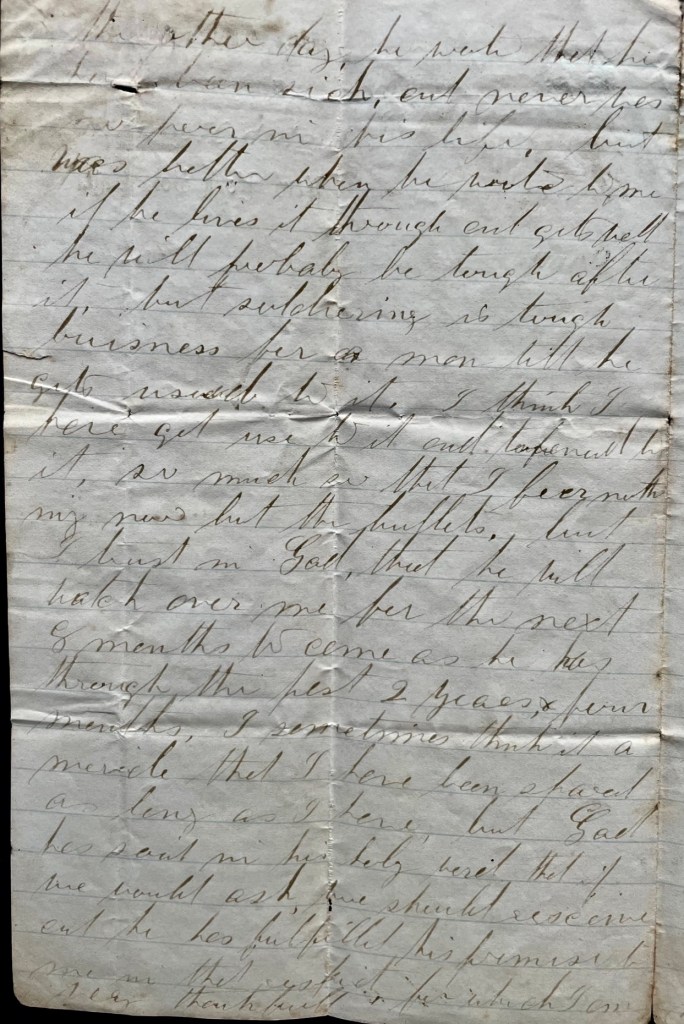 the other day, he wrote that he
has been sick, and never was
so poor in his life, but
was better when he wrote to me
if he lives it through and gets well
he will probaly be tough after
it, but soldiering is tough
buisness for a man till he
gets used to it. I think I
have get use to it and toughened to
it, so much so that I fear noth
ing now but the bullets, but
I trust in God, that he will
watch over me for the next
8 months to come as he has
through the past 2 years, & four
months, I sometimes think it a
miricle that I have been spared
as long as I have, but God
has said in his holy word that if
we would ask, we should resceive
and he has fulfilled his promise to
me in that respect for which I am
very thankfull